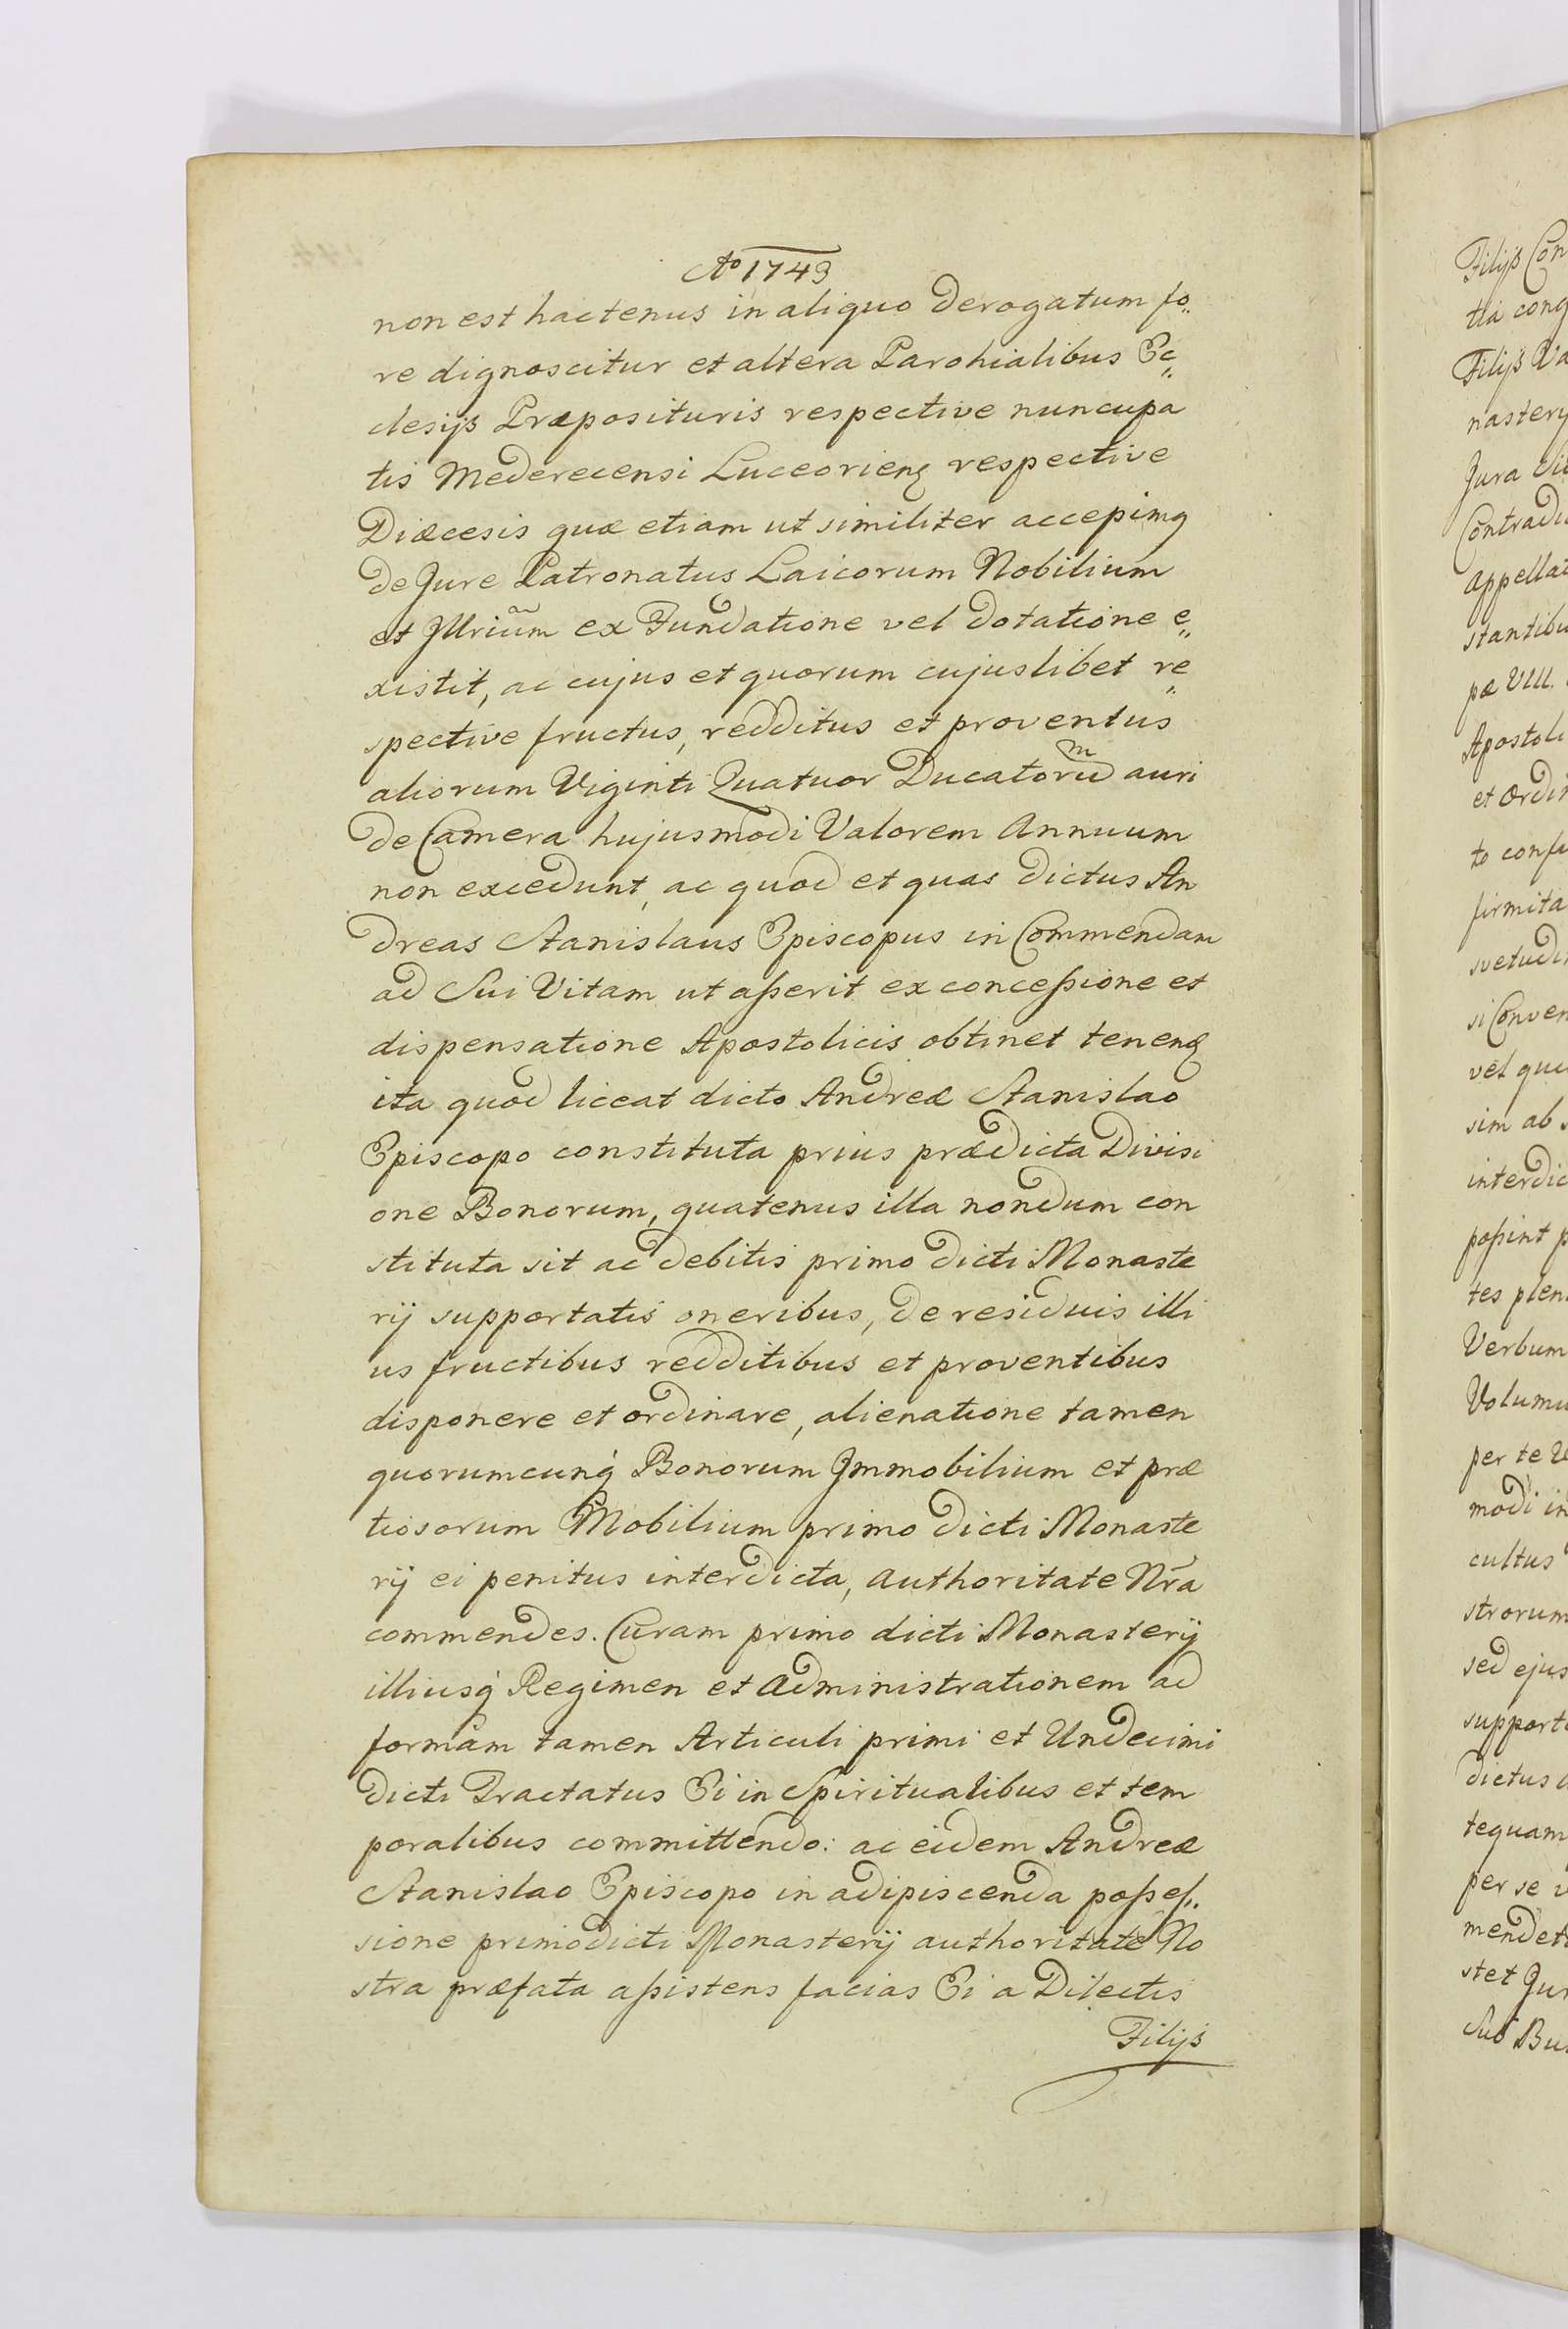 Aº 1743
non est hactenus in aliquo derogatum fo„
re dignoscitur et altera Parohialibus Ec„
clesijs Præposituris respective nuncupa
tis Mederecensi Luceorienẹ respective
Diæcesis quæ etiam ut similiter accepimꝯ
de Jure Patronatus Laicorum Nobilium
et Jllriũm ex Fundatione vel dotatione e„
xistit, ac cujus et quorum cujuslibet re„
spective fructus, redditus et proventus
aliorum Viginti Quatuor Ducatorũ auri
de Camera hujusmodi Valorem Annuum
non excedunt, ac quod et quas dictus An
dreas Stanislaus Episcopus in Commendam
ad Sui Vitam ut aßerit ex conceßione et
dispensatione Apostolicis obtinet tenenẹ
ita quod liceat dicto Andreæ Stanislao
Episcopo constituta prius prædicta Divisi
one Bonorum, quatenus illa nondum con
stituta sit ac debitis primo dicti Monaste
rij supportatis oneribus, de residuis illi
us fructibus redditibus et proventibus
disponere et ordinare, alienatione tamen
quorumcunq́ Bonorum Jmmobilium et præ
tiosorum Mobilium primo dicti Monaste
rij ei penitus interdicta, authoritate Nr̃a
commendes. Curam primo dicti Monasterij
illiusq́ Regimen et administrationem ad
formam tamen Articuli primi et Undecimi
dicti Tractatus Ei in Spiritualibus et tem
poralibus committendo: ac eidem Andreæ
Stanislao Episcopo in adipiscenda poßes.
sione primodicti Monasterij authoritate No
stra præfata aßistens facias Ei a Dilectis
Filijs
Filijs Con
tia cong
Filijs Va
nastery
Jura
Contradi
appella
stantibu
pæ VIII.
Apostoli
et Ordin
to confi
firmita
svetudi
si Conven
vel qui
sim ab s
interdic
poßint p
tes plen
Verbum
Volumu
per te
modi in
cultus
strorum
sed ejus
support
dictus
tequam
per se
mendet
stet Jur
Sub Bu